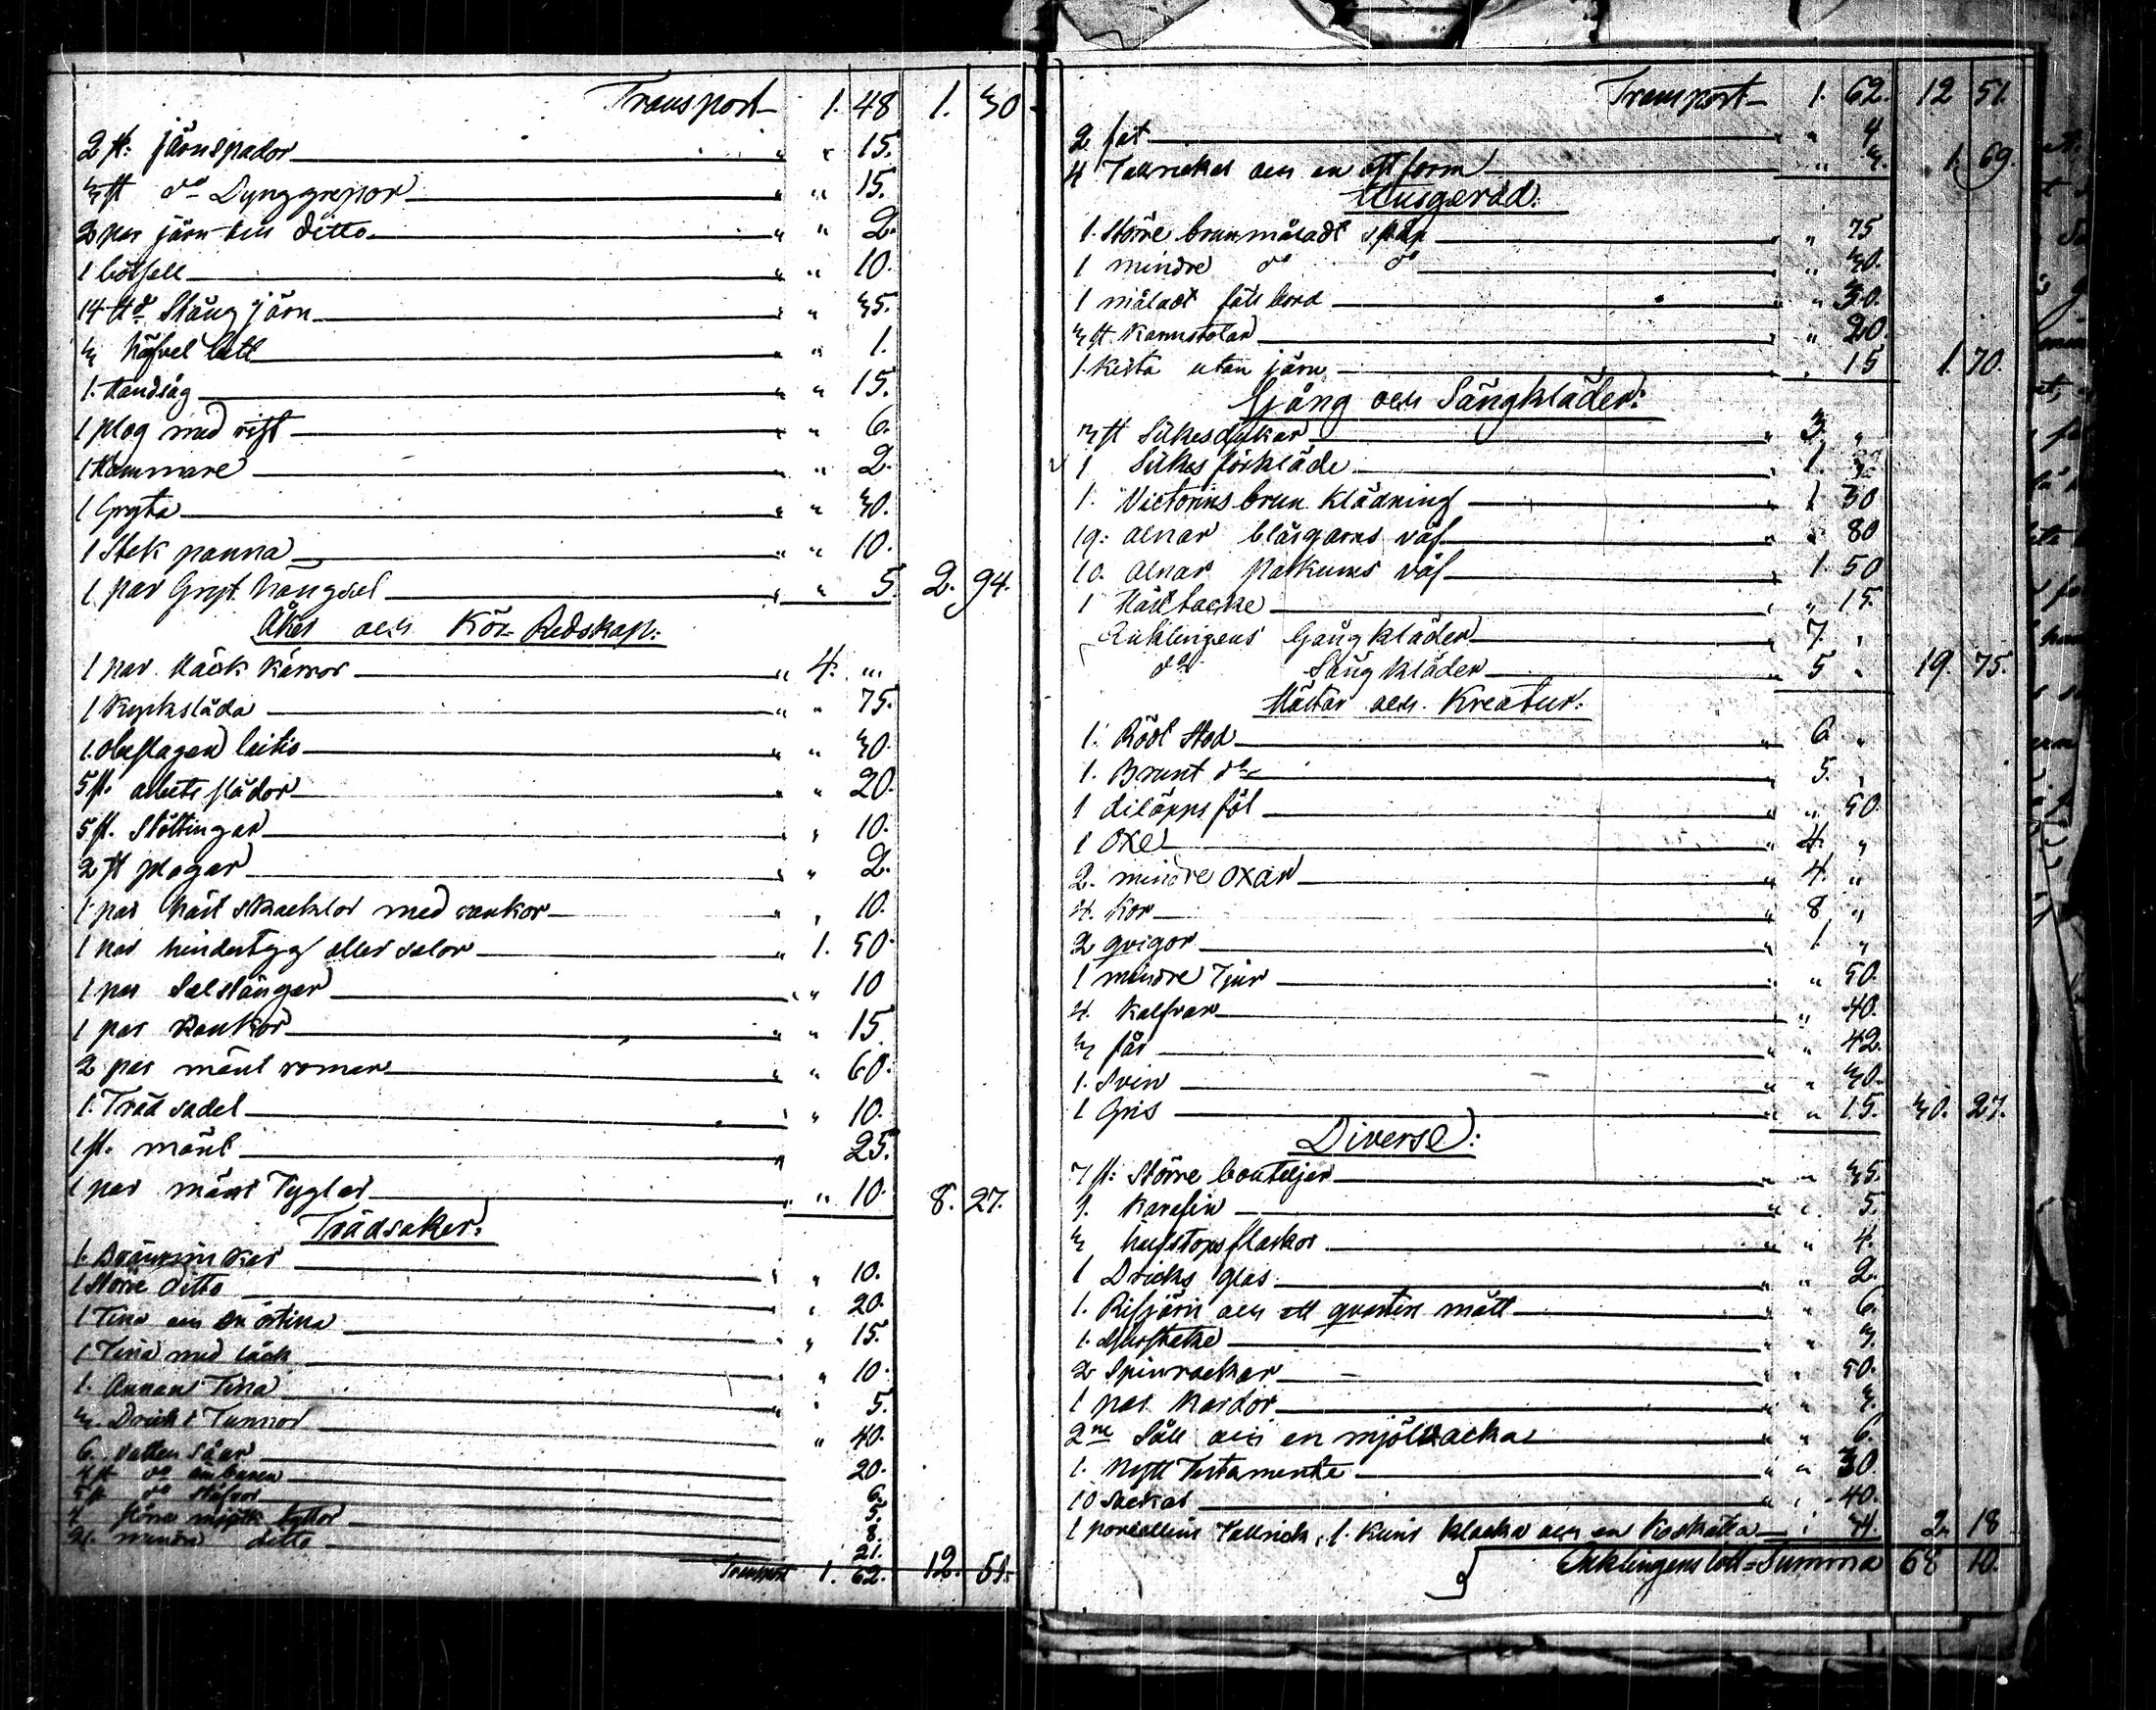 Transport 1. 48 1. 30
2 st: järnspador " " 15.
3 st do Dynggrepor " " 15.
2 par järn ben ditto " " 2.
1 bösfell " " 10.
14 ttd Stång järn " " 35.
3 häfvel bett " " 1.
1. Handsåg " " 15.
1 plog med rist " " 6.
1 Hammare " " 2.
1 Gryta " " 30.
1 Stek panna " " 10.
1 par Gryt hängsel " " 5 2. 94.
Åker och Kör-Redskap:
1 par Häck Kärror " 4. "
1 Kyrksläda " " 75.
1. obeslagen " " 30.
5 st. arbets slädor " " 20.
5 st. Stöttingar " " 10.
2 st plogar " " 2.
1 par häst skacklor med rankor " " 10.
1 par hindertyg eller selor " 1. 50.
1 par Selstänger " " 10
1 par Rankor " " 15
2 par mänt romar " " 60.
1. Träd sadel " " 10.
1 st. mänt " 25.
1 par mänt Tyglar " " 10. 8. 27.
Trädsaker:
1. Brännvin Kar " " 10.
1 Större ditto " 20.
1 Tina och en östina " " 15.
1. Tina med läck " 10.
1. Annan Tina " " 5.
3. Dricks Tunnor " 40.
6. vatten såar 20.
4 st do ämbaren 6.
5 st do stäfvor 5.
4 större mjölk byttor 8.
21. mindre ditto 21.
Transport 1. 62. 12. 51.
Transport 1. 62. 12 51.
2 fat " " 4
4 Tallrickar och en ostform " " 3. 1. 69.
Husgeråd:
1. Större brunmåladt skåp " " 75
1 mindre do do " " 30.
1 måladt fäll bord " " 30.
3 st Karmstolar " " 20
1. Kista utan järn " " 15 1. 70.
Gång och Sängkläder:
3 st Silkesdukar " 3. "
1 Silkes förkläde " 1.
1. Victorins brun Klädning " 1 30
19: alnar blårgarns väf " " 80
10. alnar Palkums väf " 1 50
1 Hästtacke " " 15.
Enklingens Gångkläder " 7. "
do Sängkläder " 5 " 19. 75.
Hästar och Kreatur:
1. Rödt Stod " 6 "
1. Brunt do " 5. "
1 diläpps föl " " 50.
1 Oxe " 4. "
2. mindre oxar " 4. "
4. Kor " 8 "
2 qvigor " 1 "
1 mindre Tjur " " 50.
4. Kalfvar " " 40.
3 får " " 42.
1. Svin " " 30.
1 Gris " " 15. 30. 27.
Diverse:
7 st: Större bouteljer " " 35.
1. Karafin " " 5.
3 halfstops flaskor " " 4.
1 Dricks glas " " 2.
1. Rifjärn och ett qvarten mått " " 6.
1. Ljusstake " " 3.
2 Spinrockar " " 50.
1 par Kardor " " 3.
2ne Såll och en mjölsacka " " 6.
1. Nytt Testamente " " 30.
10 säckar " " 40.
1 porcellins Tallrick, 1. Knivs klocka och en Koskälla " 4. 2. 18
Enklingens lott=Summa 68 10.